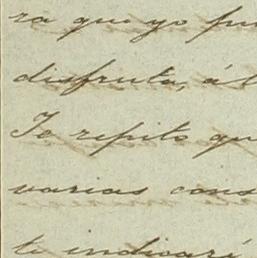 ra que yo pu
disfruta, á l
Te repito qu
varias cons
te indicari